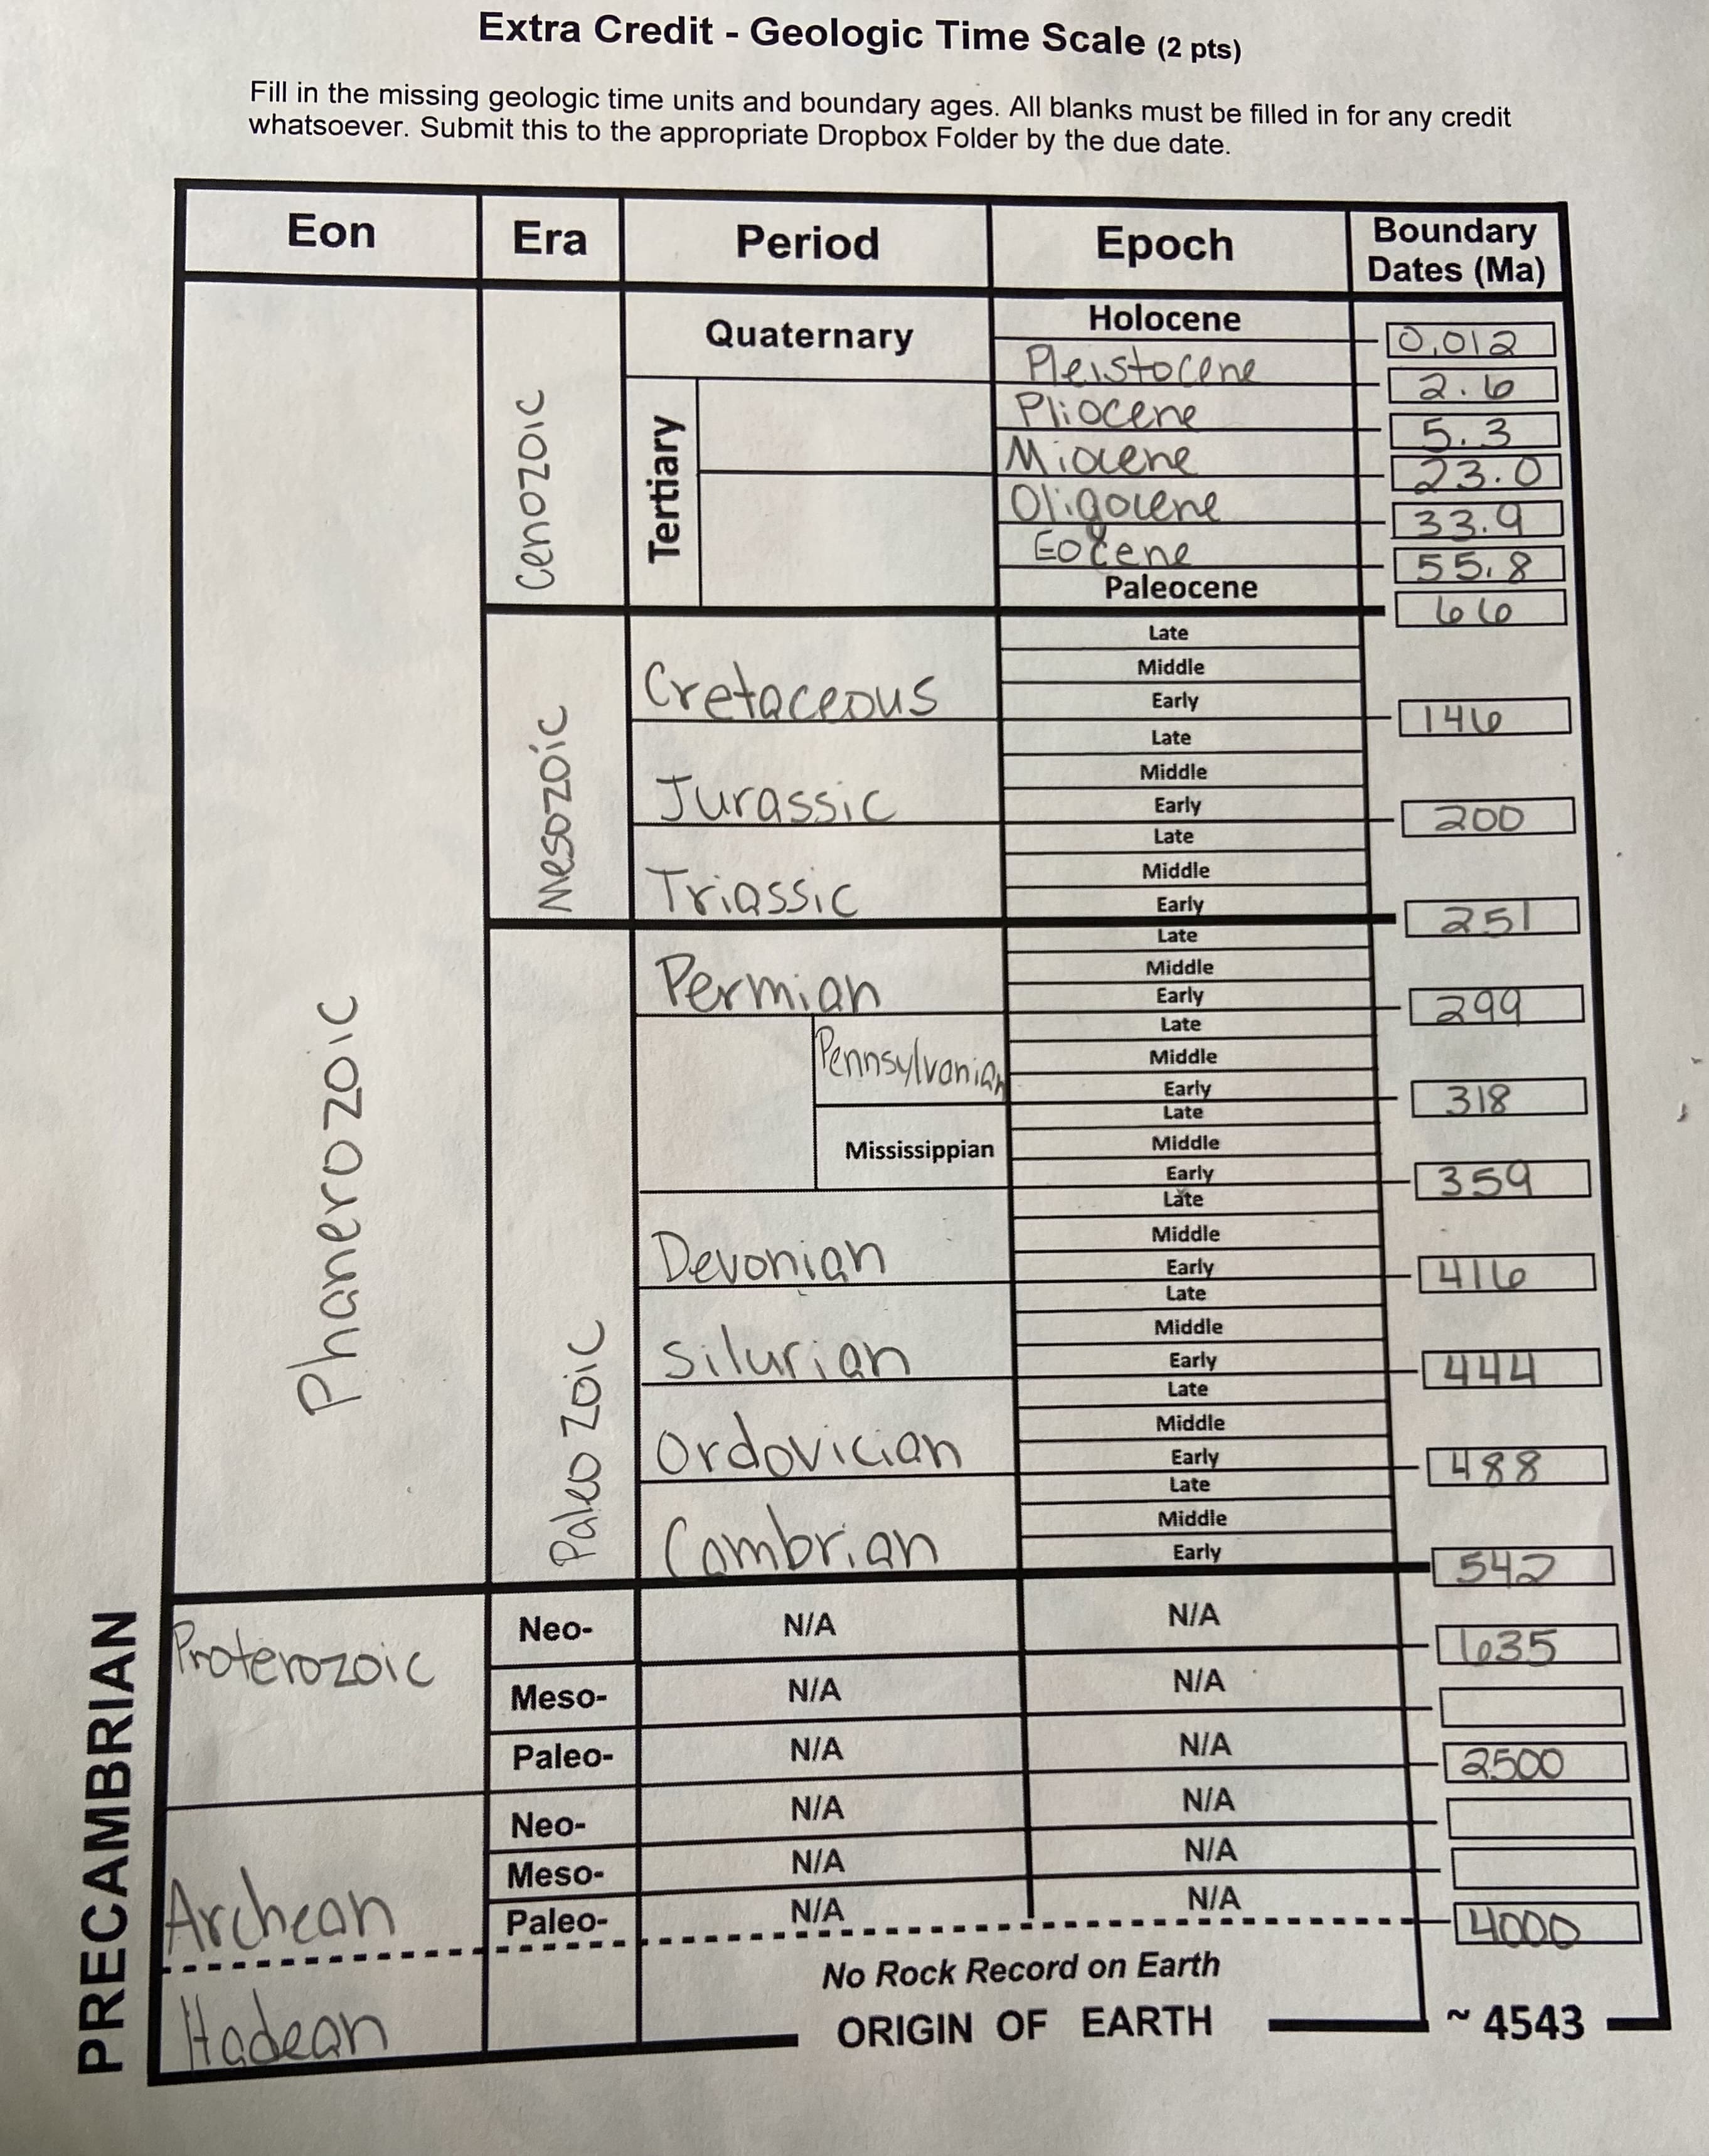 Extra Credit - Geologic Time Scale (2 pts)
Fill in the missing geologic time units and boundary ages. All blanks must be filled in for any credit
whatsoever. Submit this to the appropriate Dropbox Folder by the due date.
Eon Era Period Epoch Boundary
Dates (Ma)
Phanerozoic
Cenozoic
Quaternary
Holocene
0.012
Pleistocene
2.6
Tertiary
Pliocene
5.3
Miocene
23.0
Oligocene
33.9
Eocene
55.8
Paleocene
66
Mesozoic
Cretaceous
Late
Middle
Early
146
Jurassic
Late
Middle
Early
200
Triassic
Late
Middle
Early
251
Paleozoic
Permian
Late
Middle
Early
299
Pennsylvanian
Late
Middle
Early
318
Mississippian
Late
Middle
Early
359
Devonian
Late
Middle
Early
416
Silurian
Late
Middle
Early
444
Ordovician
Late
Middle
Early
488
Cambrian
Late
Middle
Early
542
PRECAMBRIAN
Proterozoic
Neo- N/A N/A
635
Meso- N/A N/A
Paleo- N/A N/A
2500
Archean
Neo- N/A N/A
Meso- N/A N/A
Paleo- N/A N/A
4000
Hadean
No Rock Record on Earth
ORIGIN OF EARTH ~ 4543